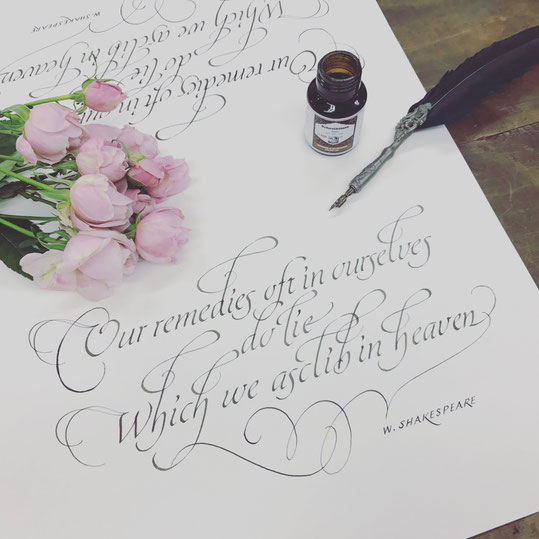 Our remedies oft in our
do lie
Which we asctib in heaven
W. SHAKESPEARE
Our remedies oft in ourselves
do lie
Which we asctib in heaven
W. SHAKESPEARE